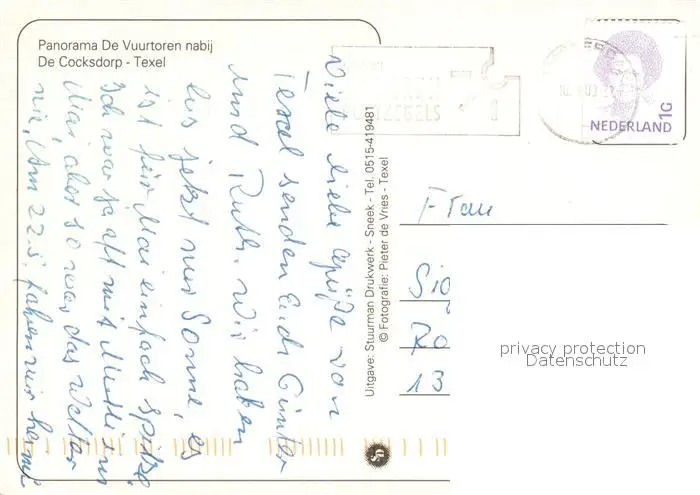 Panorama De Vuurtoren nabij
De Cocksdorp - Texel
Viele liebe Grüße von
Texel senden Euch Günter
und Ruth. Wir haben
bis jetzt nur Sonne, es
ist für Mai einfach spitze.
Ich war ja oft mit Mutti im
Mai, aber so war das Wetter
nie. Am 22.5. fahren wir heim
Uitgave: Stuurman Drukwerk - Sneek - Tel. 0515-419481
© Fotografie: Pieter de Vries - Texel
NEDERLAND 1G
Frau
Sio
Ro
13
privacy protection
Datenschutz